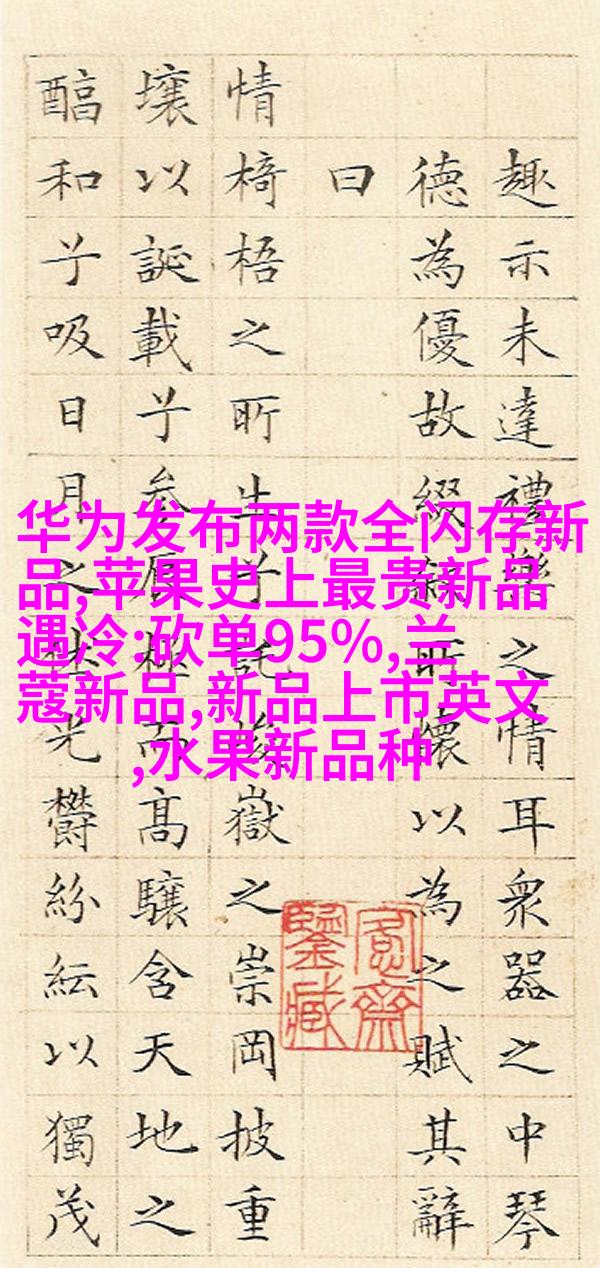 趣示未達禮樂之情耳衆器之中琴
德為優故綴敘所懷以為之賦其辭
曰
情椅梧之所生兮託峻嶽之崇岡披重
壤以誕載兮參辰極而高驤含天地之
醕和兮吸日月之休光鬱紛紜以獨茂
愙齋
鑒藏
华为发布两款全闪存新
品,苹果史上最贵新品
遇冷:砍单95%,兰
蔻新品,新品上市英文
,水果新品种